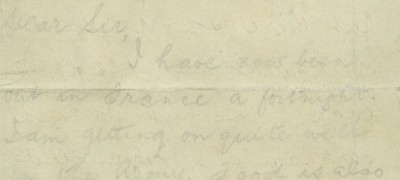 Dear Sir,
I have now been
out in France a fortnight.
I am getting on quite well
in the Army. Food is also